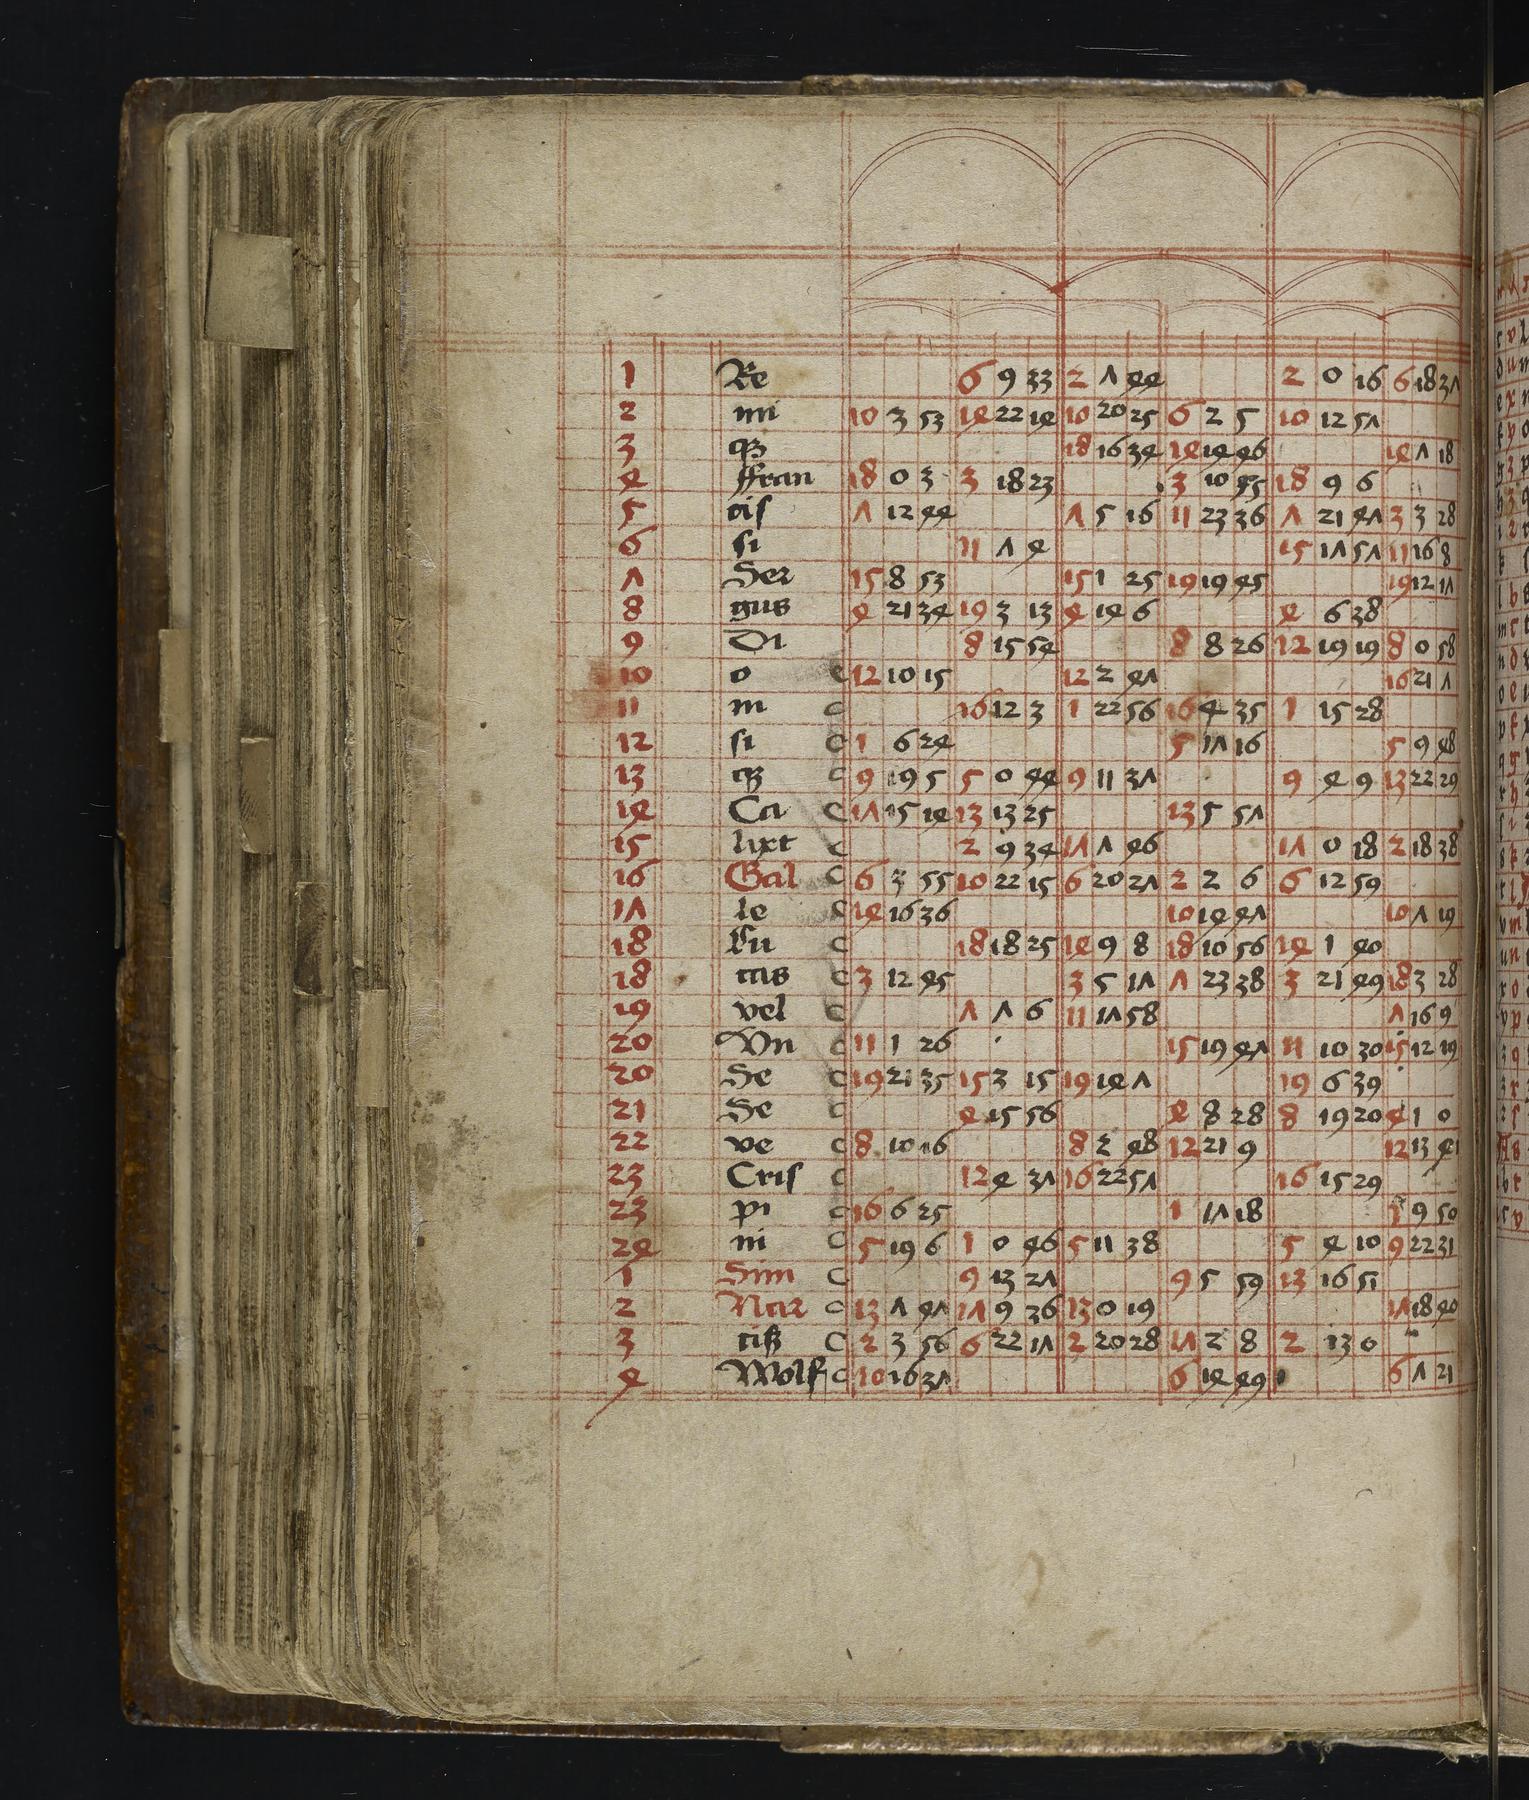 1 Re 6 9 33 2 Λ 44 2 0 16 6 18 3Λ
2 mi 10 3 53 14 22 14 10 20 25 6 2 5 10 12 5Λ
3 18 16 34 14 14 46 14 Λ 18
4 ffran 18 0 3 3 18 23 3 10 45 18 9 6
5 cis Λ 12 44 Λ 5 16 11 23 36 Λ 21 4Λ 3 3 28
6 si 11 Λ 4 15 1Λ 5Λ 11 16 8
Λ Ser 15 8 53 15 1 25 19 19 45 19 12 1Λ
8 gius 4 21 34 19 3 13 4 14 6 4 6 38
9 Di 8 15 54 8 8 26 12 19 19 8 0 58
10 o c 12 10 15 12 2 4Λ 16 21 Λ
11 m c 16 12 3 1 22 56 16 4 35 1 15 28
12 si c 1 6 24 5 1Λ 16 5 9 48
13 c 9 19 5 5 0 44 9 11 3Λ 9 4 9 13 22 29
14 Ca c 1Λ 15 14 13 13 25 13 5 5Λ
15 lixt c 2 9 34 1Λ Λ 46 1Λ 0 18 2 18 38
16 Gal c 6 3 55 10 22 15 6 20 2Λ 2 2 6 6 12 59
1Λ le c 14 16 36 10 14 4Λ 10 Λ 19
18 Lu c 18 18 25 14 9 8 18 10 56 14 1 40
18 cas c 3 12 45 3 5 1Λ Λ 23 38 3 21 49 18 3 28
19 vel c Λ Λ 6 11 1Λ 58 Λ 16 9
20 Vn c 11 1 26 15 19 4Λ 11 10 30 15 12 19
20 De c 19 21 35 15 3 15 19 14 Λ 19 6 39
21 Se c 4 15 56 4 8 28 8 19 20 4 1 0
22 ve c 8 10 16 8 2 48 12 21 9 12 13 41
23 Cris c 12 4 3Λ 16 22 5Λ 16 15 29
23 pi c 16 6 25 1 1Λ 18 1 9 50
24 ni c 5 19 6 1 0 46 5 11 38 5 4 10 9 22 31
1 Sim c 9 13 2Λ 9 5 59 13 16 51
2 Nar c 13 Λ 4Λ 1Λ 9 36 13 0 19 1Λ 18 40
3 cis c 2 3 56 6 22 1Λ 2 20 28 1Λ 2 8 2 13 0
4 Wolf c 10 16 3Λ 6 14 49 6 Λ 21